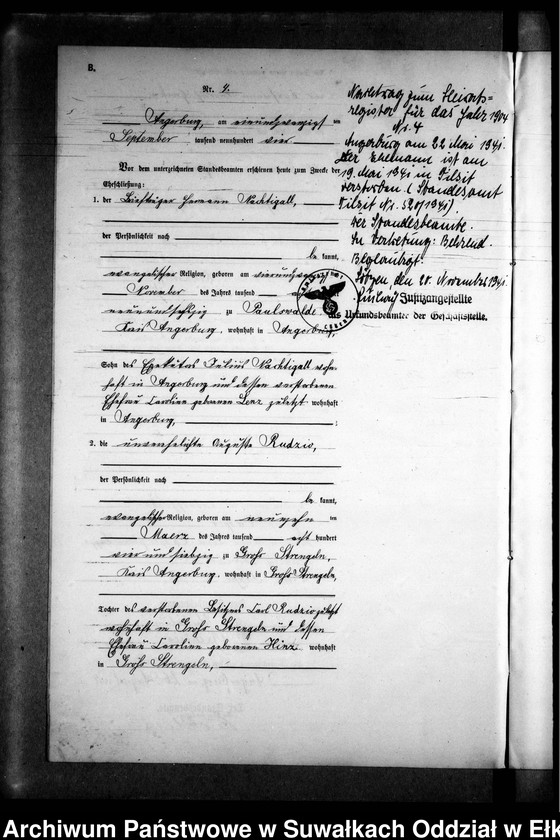 B.
Nr. 4.
Angerburg, am einundzwanzigsten
September tausend neunhundert vier
Vor dem unterzeichneten Standesbeamten erschienen heute zum Zwecke der
Eheschließung:
1. der Hermann Nachtigall,
der Persönlichkeit nach
be kannt,
evangelischer Religion, geboren am
November des Jahres tausend
neunundsechzig zu Paulswalde
Kreis Angerburg, wohnhaft in Angerburg,
Sohn des Julius Nachtigall wohn-
haft in Angerburg und dessen verstorbenen
Ehefrau Caroline geborenen Lenz zuletzt wohnhaft
in Angerburg,
2. die unverehelichte Auguste Rudzio,
der Persönlichkeit nach
be kannt,
evangelischer Religion, geboren am neunzehn ten
Maerz des Jahres tausend acht hundert
vier und siebzig zu Groß Strengeln,
Kreis Angerburg, wohnhaft in Groß Strengeln,
Tochter des verstorbenen Besitzers Carl Rudzio zuletzt
wohnhaft in Groß Strengeln und dessen
Ehefrau Caroline geborenen Hinz wohnhaft
in Groß Strengeln,
Nachtrag zum Heirats=
register für das Jahr 1904
Nr. 4
Angerburg am 22 Mai 1941.
Der Ehemann ist am
19. Mai 1941 in Tilsit
verstorben. (Standesamt
Tilsit Nr. 520/1941).
Der Standesbeamte.
In Vertretung: Behrend.
Beglaubigt.
Lötzen, den 20. November 1941.
Justizangestellte
als Urkundsbeamter der Geschäftsstelle.
Archiwum Państwowe w Suwałkach Oddział w Ełk